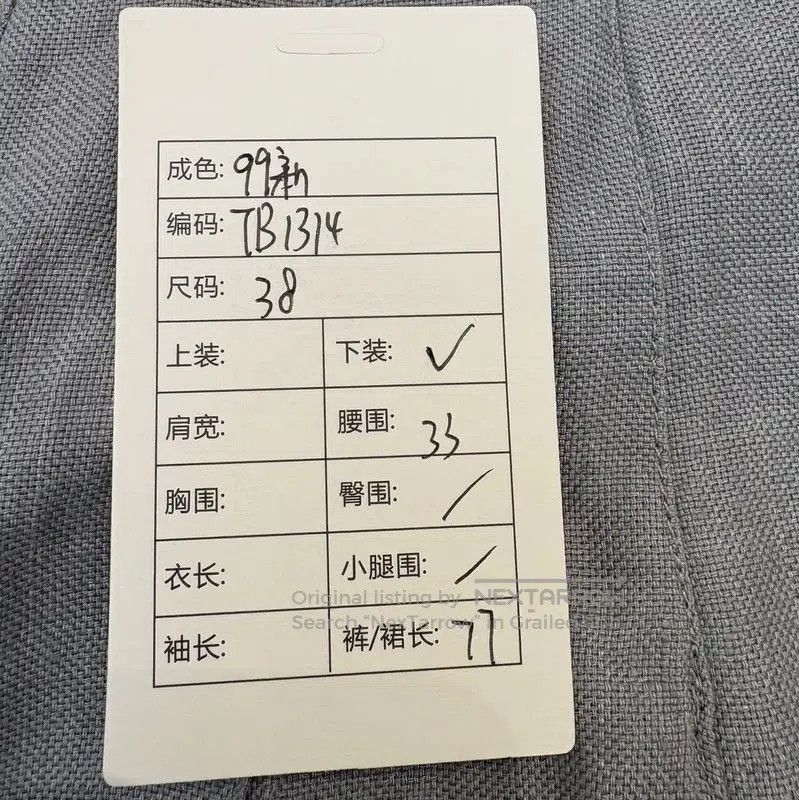 成色: 99新
编码: TB1314
尺码: 38
上装: 下装: ✓
肩宽: 腰围: 33
胸围: 臀围: /
衣长: 小腿围: /
Original listing by NEXTAR
Search "NexTarrow" in Grailed
袖长: 裤/裙长: 77